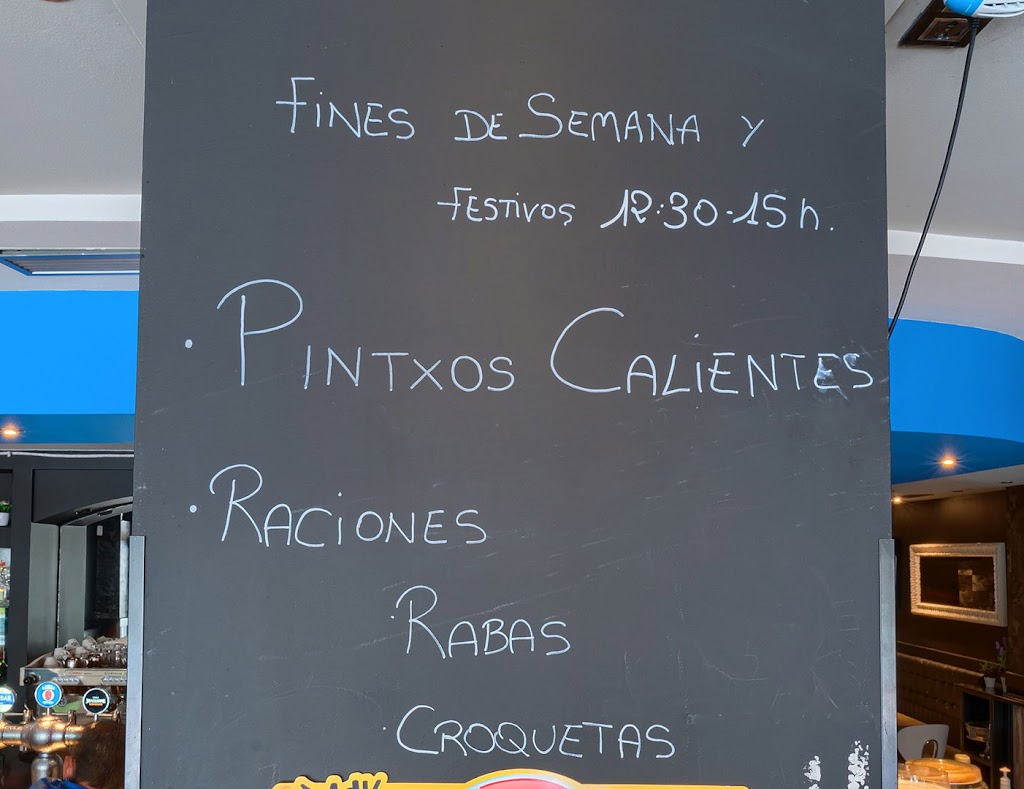 FINES DE SEMANA Y
FESTIVOS 12:30-15h.
· PINTXOS CALIENTES
· RACIONES
· RABAS
· CROQUETAS